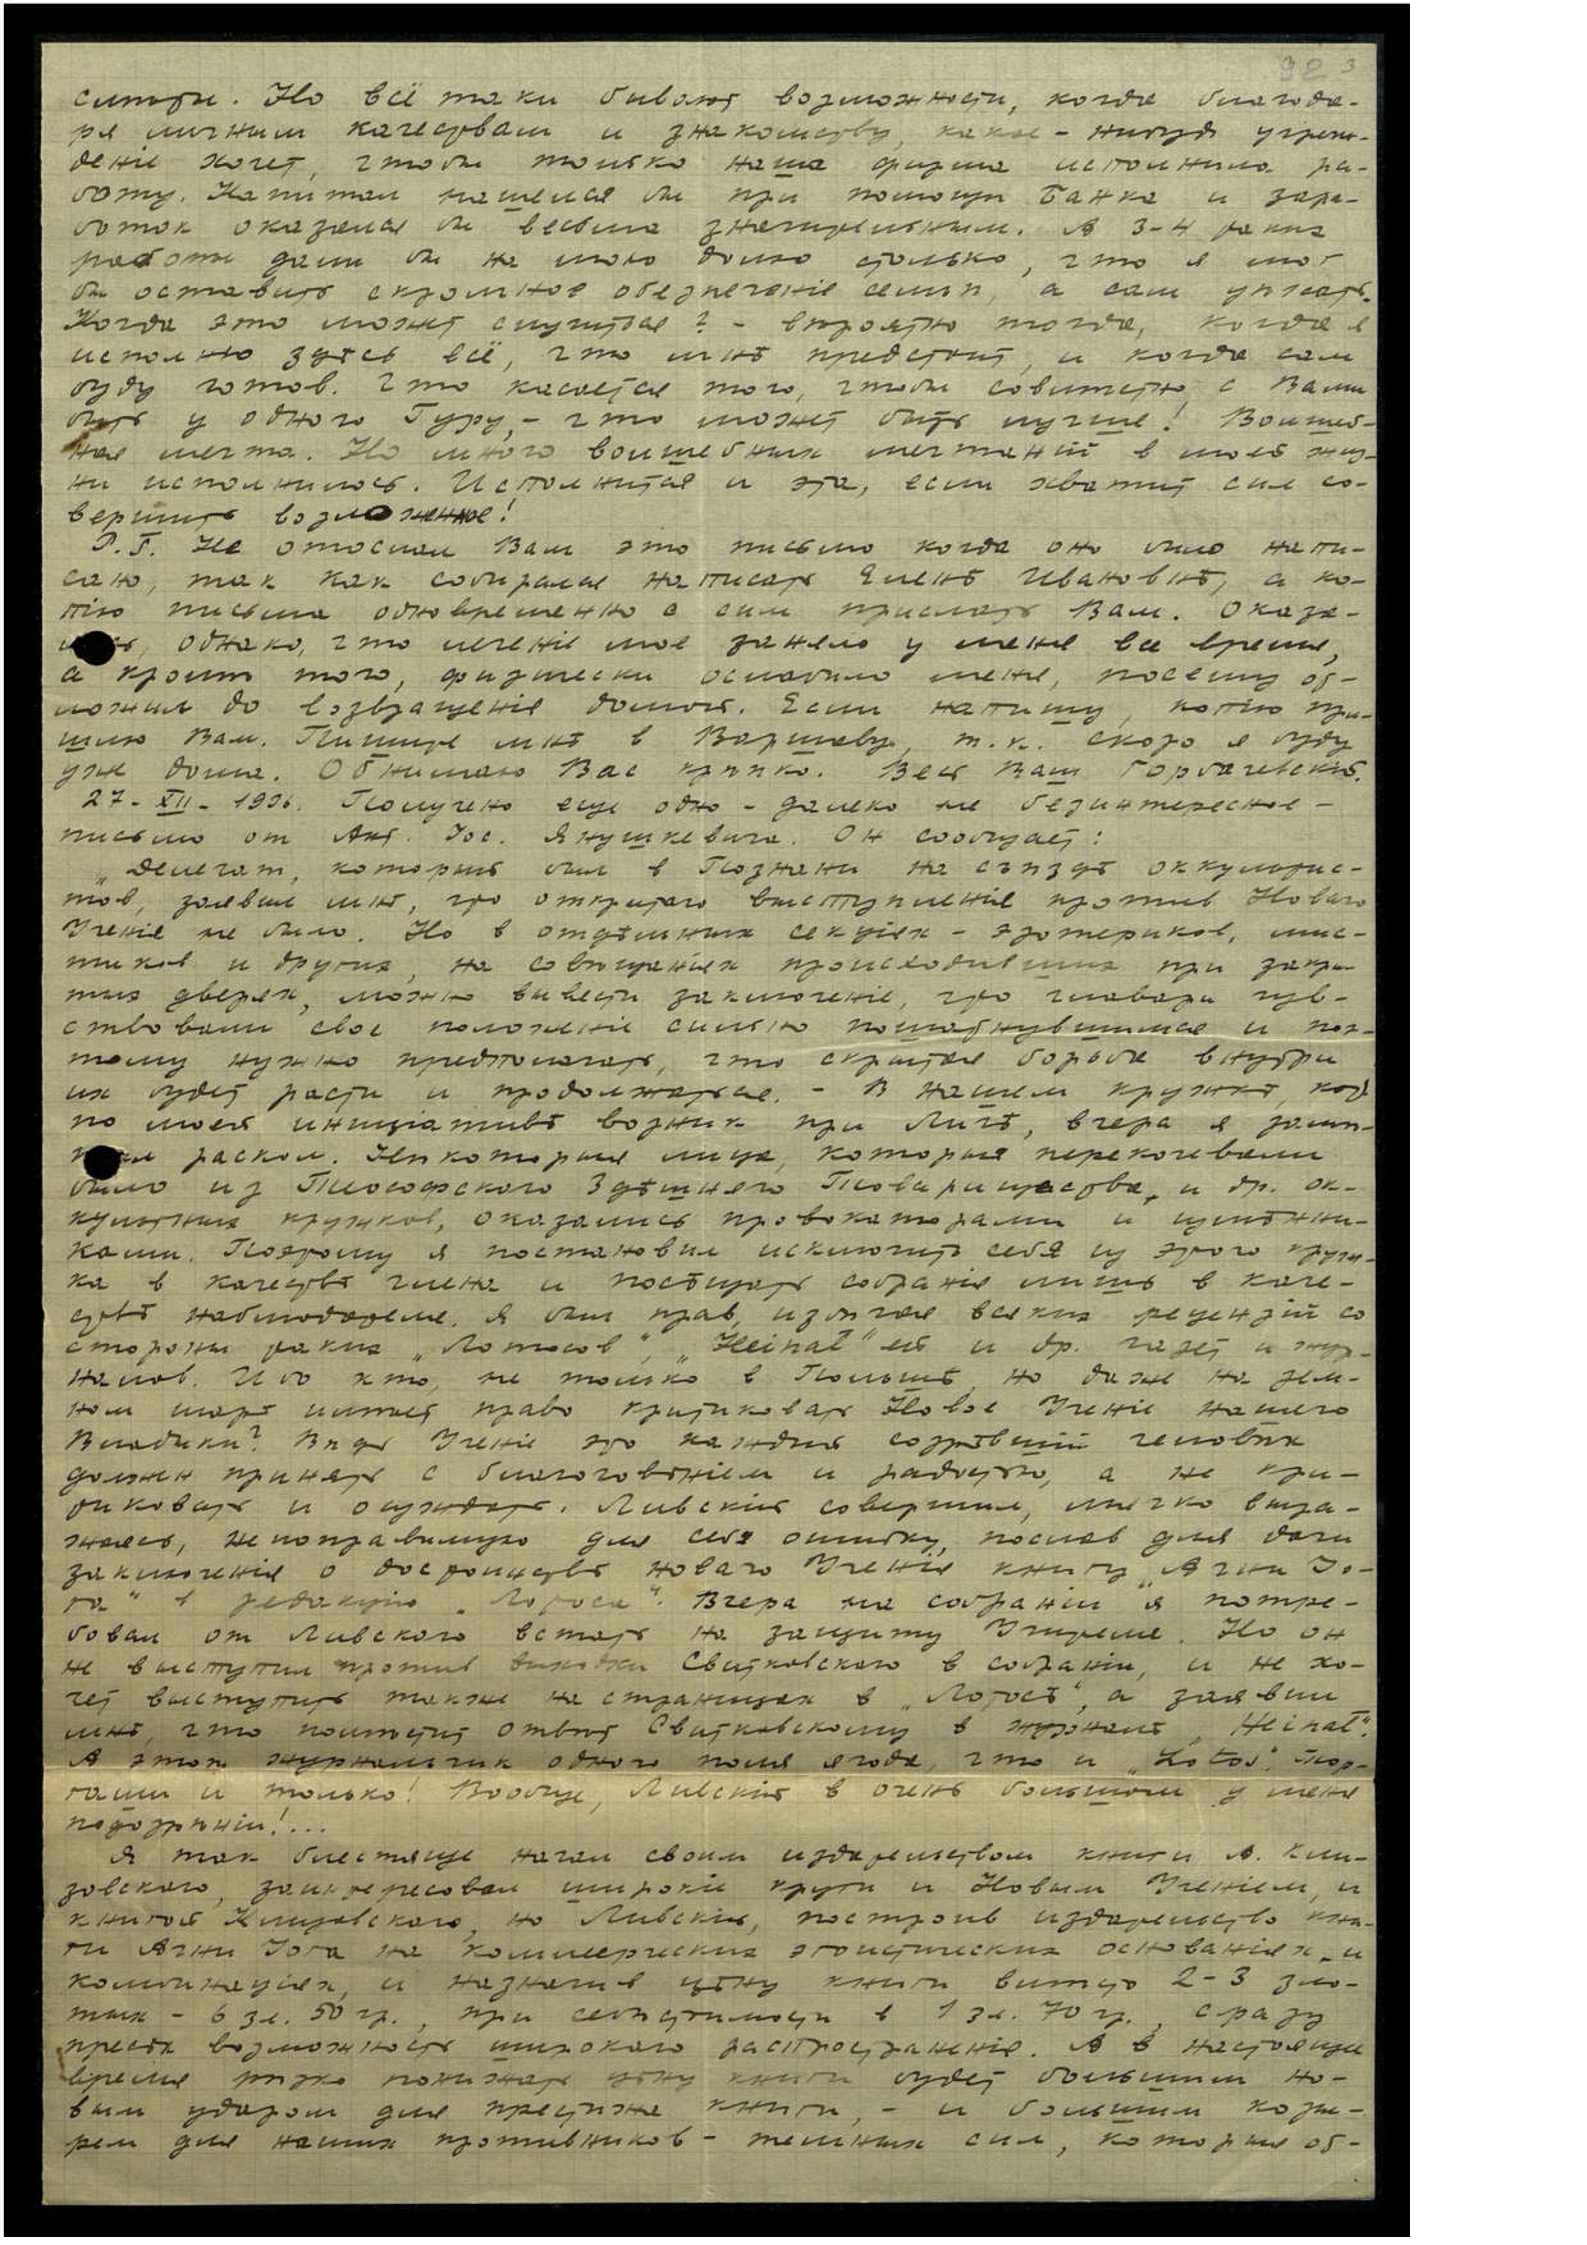 92 3
силы. Но всё таки бывают возможности, когда благода-
ря личным качествам и знакомству, какое-нибудь учреж-
деніе хочет, чтобы только наша фирма исполнила ра-
боту. Капитал нашелся бы при помощи Банка и зара-
боток оказался бы весьма значительным. А 3-4 таких
работы дали бы на мою долю столько, что я мог
бы оставить скромное обезпеченіе семьи, а сам уѣхать.
Когда это может случиться? - вѣроятно тогда, когда я
исполню здѣсь всё, что мнѣ предстоит, и когда сам
буду готов. Что касается того, чтобы совмѣстно с Вами
быть у одного Гуру, - что может быть лучше! Волшеб-
ная мечта. Но много волшебных мечтаній в моей жиз-
ни исполнилось. Исполнится и эта, если хватит сил со-
вершить возможное!
P.S. Не отослал Вам это письмо когда оно было напи-
сано, так как собирался написать Еленѣ Ивановнѣ, а ко-
пію письма одновременно с сим прислать Вам. Оказа-
лось, однако, что леченіе мое заняло у меня все время,
а кромѣ того, физически ослабило меня, посему от-
ложил до возвращенія домой. Если напишу, копію при-
шлю Вам. Пишите мнѣ в Варшаву, т.к. скоро я буду
уж дома. Обнимаю Вас крѣпко. Весь Ваш Горбачевскій.
27-XII-1936. Получено еще одно - далеко не безинтересное -
письмо от Ант. Іос. Янушкевича. Он сообщает:
„Делегат, который был в Познани на съѣздѣ оккультис-
тов, заявил мнѣ, что открытаго выступленія против Новаго
Ученія не было. Но в отдѣльных секціях - эзотериков, мис-
тиков и других, на совѣщаніях происходивших при закры-
тых дверях, можно вывести заключеніе, что главари чув-
ствовали свое положеніе сильно пошатнувшимся и поэ-
тому нужно предполагать, что скрытая борьба внутри
их будет расти и продолжаться. - В нашем кружкѣ, код
по моей иниціативѣ возник при Лигѣ, вчера я замѣ-
тил раскол. Нѣкоторыя лица, которыя перекочевали
было из Теософскаго Здѣшняго Товарищества, и др. ок-
культных кружков, оказались провокаторами и
ками. Поэтому я постановил исключить себя из этого круж-
ка в качествѣ члена и посѣщать собранія лишь в каче-
ствѣ наблюдателя. Я был прав, избѣгая всяких рецензій со
стороны таких „Лотосов", „Hejnał"ей и др. газет и жур-
налов. Ибо кто, не только в Польшѣ, но даже на зем-
ном шарѣ имѣет право критиковать Новое Ученіе нашего
Владыки? Вѣдь Ученіе это каждый созрѣвшій человѣк
должен принять с благоговѣніем и радостью, а не кри-
тиковать и осуждать. Ливскій совершил, мягко выра-
жаясь, непоправимую для себя ошибку, послав для дачи
заключенія о достоинствѣ новаго Ученія книгу „Агни Іо-
га" в редакцію „Лотоса". Вчера на собраніи я потре-
бовал от Ливского встать на защиту Учителя. Но он
не выступил против выходки Свитковского в собраніи, и не хо-
чет выступить также на страницах в „Лотосѣ", а заявил
мнѣ, что помѣстит отвѣт Свитковскому в журналѣ „Hejnał".
А этот журнальчик одного поля ягода, что и „Lotos". Тор-
гаши и только! Вообще, Ливскій в очень большом у меня
подозрѣніи!...
Я так блестяще начал своим издательством книги А. Кли-
зовского, заинтересовал широкіе круги и Новым Ученіем, и
книгой Клизовского, но Ливскій, построив издательство кни-
ги Агни Іога на коммерческих эгоистических основаніях и
комбинаціях, и назначив цѣну книги вмѣсто 2-3 зло-
тых - 6 зл. 50 гр., при себѣстоимости в 1 зл. 70 гр., сразу
пресѣк возможность широкаго распространенія. А в настоящее
время рѣзко понижать цѣну книги будет большим но-
вым ударом для престижа книги, - и большим козы-
рем для наших противников - темных сил, которыя об-